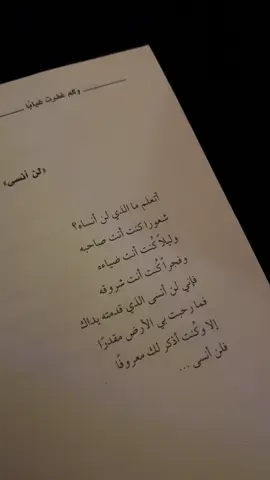 وكم غفرت غيابًا
«لن أنسى»
أتعلم ما الذي لن أنساه؟
شعورا كنت أنت صاحبه
وليلاً كُنت أنت ضياءه
وفجراً كُنت أنت شروقه
فإني لن أنسى الذي قدمته يداك
فما رحبت بي الأرض مقدرًا
إلا وكُنت أذكر لك معروفًا
فلن أنسى ...